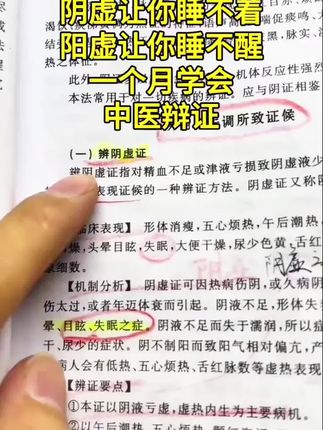 阴虚让你睡不着
阳虚让你睡不醒
一个月学会
中医辩证
热之体征。
此外
机体反应性强烈
本法常用于对一切疾病的辨证。应与阴证相鉴
调所致证候
(一) 辨阴虚证
辨阴虚证指对精血不足或津液亏损致阴虚液少
表现证候的一种辨证方法。阴虚证又称阴
临床表现】 形体消瘦,五心烦热,午后潮热,
燥,头晕目眩,失眠,大便干燥,尿少色黄,舌红
脉细数。
【机制分析】 阴虚证可因热病伤阴,或久病阴
伤太过,或者年迈体衰而引起。阴液不足,形体失
晕、目眩、失眠之症。阴液不足而失于濡润,所以症
干、尿少的症状。阴不制阳而致阳气相对偏亢,产
病人会有低热、五心烦热、舌红脉数等虚热表现
【辨证要点】
①本证以阴液亏虚,虚热内生为主要病机。
②以午后潮热、五心烦热